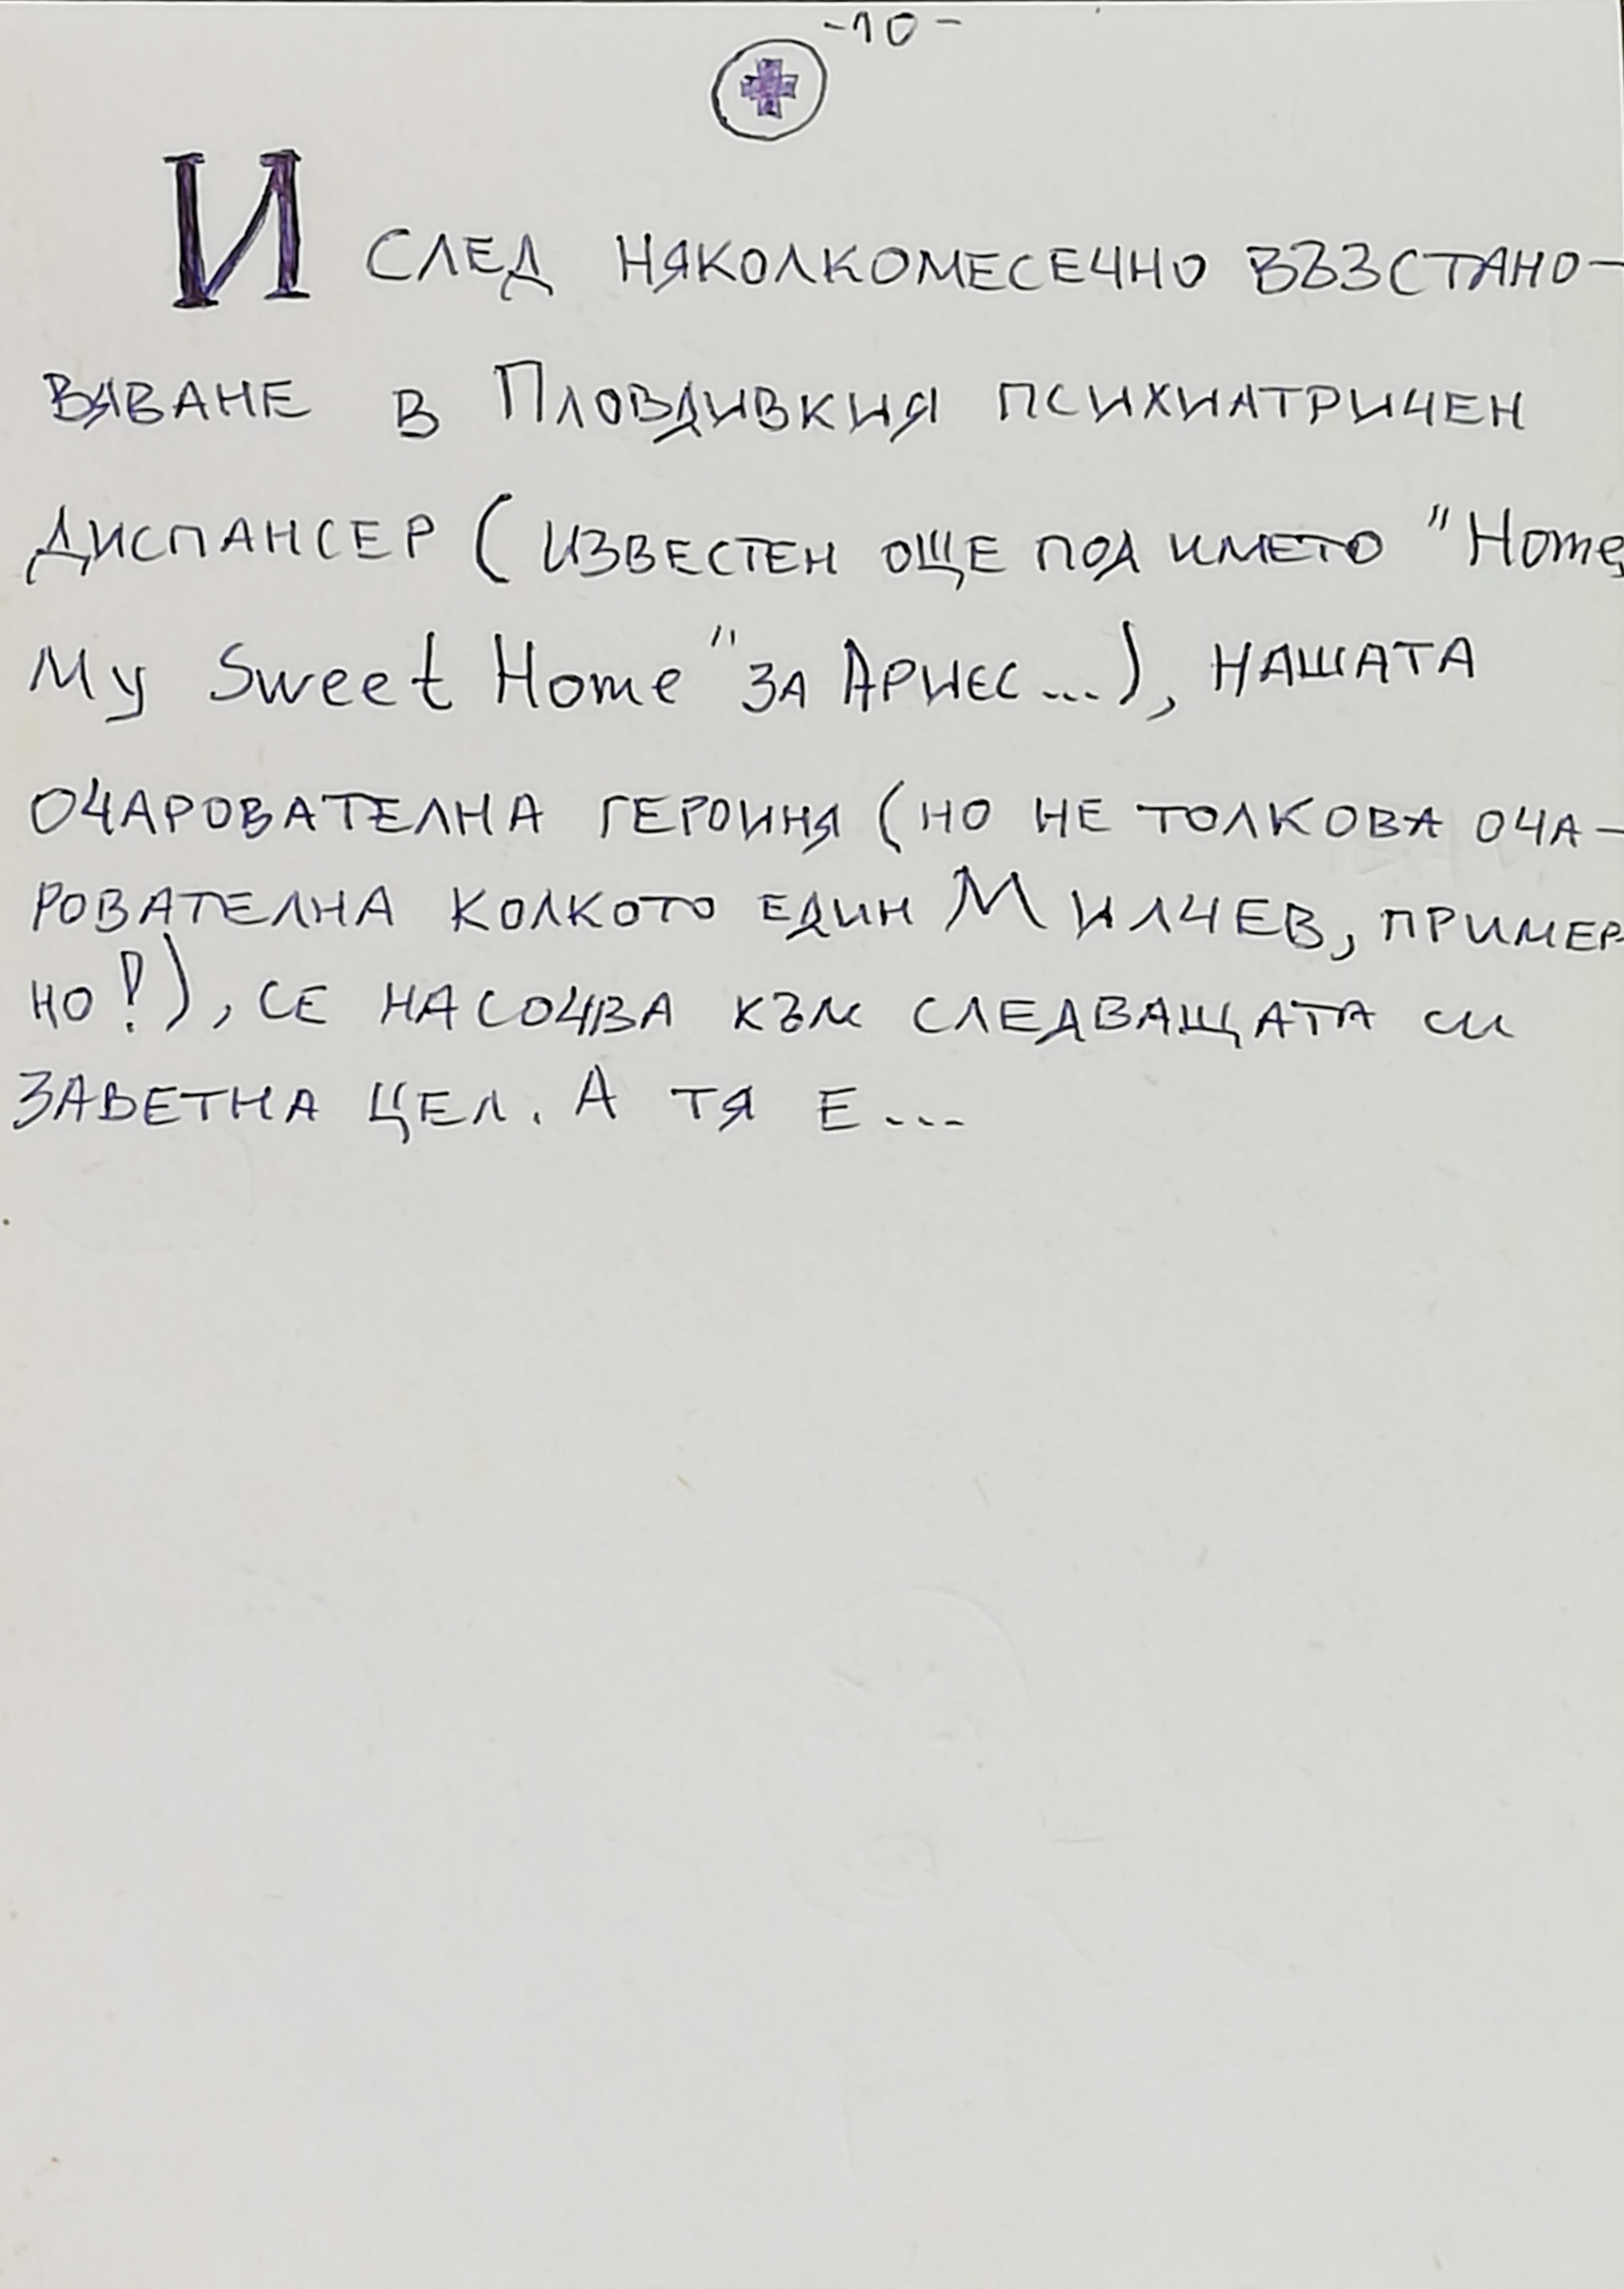 -10-
И след няколкомесечно възстано-
вяване в Пловдивкия психиатричен
диспансер (известен още под името "Home,
My Sweet Home" за Ариес...), нашата
очарователна героиня (но не толкова оча-
рователна колкото един Милчев, пример-
но!), се насочва към следващата си
заветна цел. А тя е...